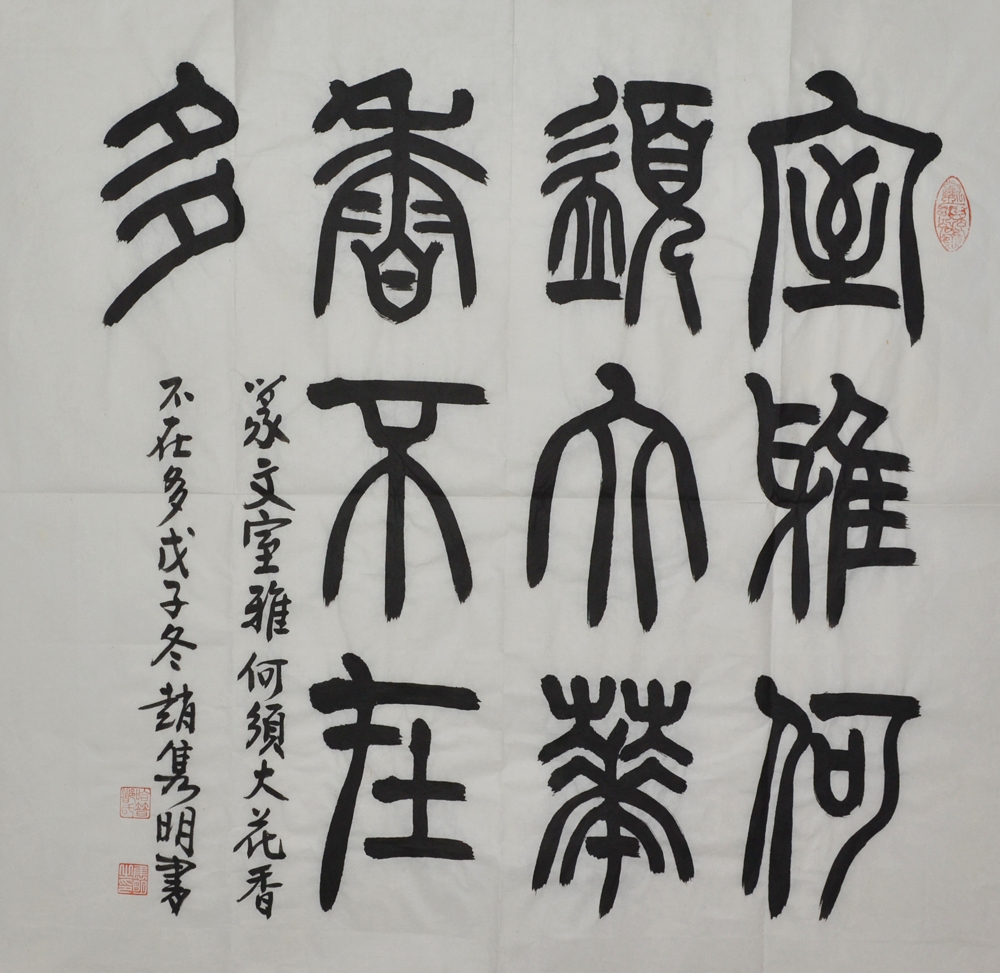 室雅何
須大華
香不在
多
篆文室雅何須大花香
不在多戊子冬趙隽明書